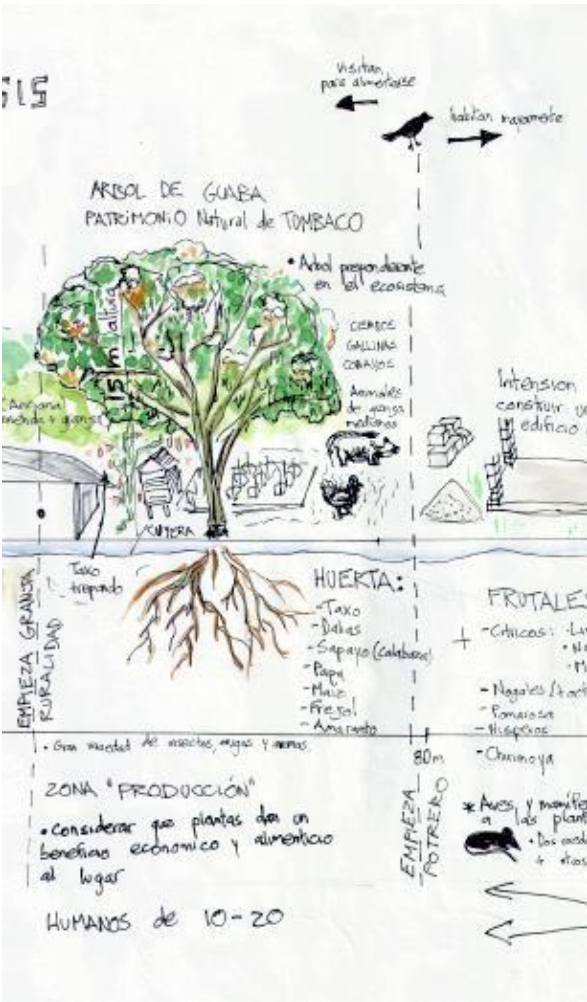 SIS
visitan
para alimentarse
habitan mayormente
ARBOL DE GUABA
PATRIMONIO Natural de TUMBACO
• Arbol preponderante
en el ecosistema
15 m altura
GALLINAS
Animales
de granja
medianos
Intension
construir
edificio
Taxo
trepando
EMPIEZA GRANJA
RURALIDAD
HUERTA:
- Taxo
- Dalias
- Sapayo (calabaza)
- Papa
- Maiz
- Frejol
- Amaranto
FRUTALES
+ - Citricos:
- Nogales
- Pomarosa
- Nisperos
- Chirimoya
• Gran variedad de insectos,
80m
EMPIEZA
POTRERO
ZONA "PRODUCCIÓN"
• considerar que plantas dan un
beneficio economico y alimenticio
al lugar
* Aves, y
a las
HUMANOS de 10-20